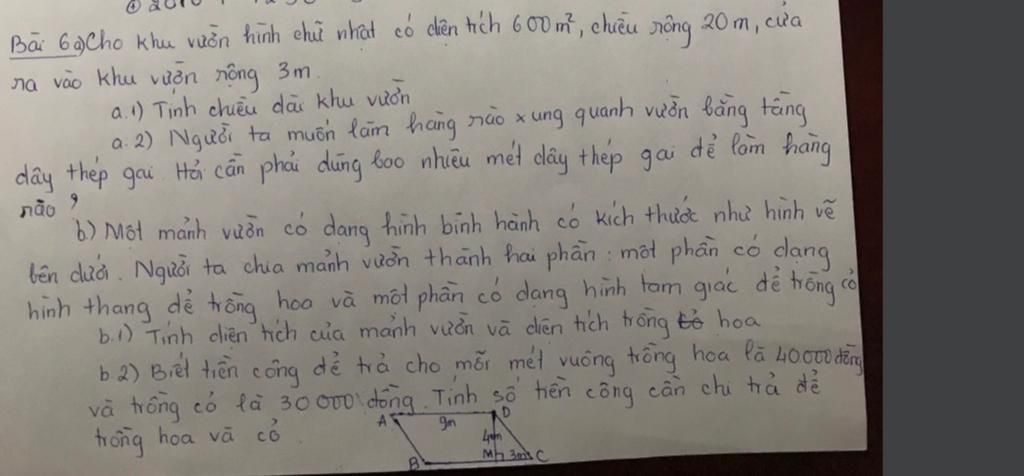 Bài 6 a) Cho khu vườn hình chữ nhật có diện tích 600m², chiều rộng 20m, cửa
ra vào khu vườn rộng 3m.
a.1) Tính chiều dài khu vườn
a.2) Người ta muốn làm hàng rào xung quanh vườn bằng tầng
dây thép gai. Hỏi cần phải dùng bao nhiêu mét dây thép gai để làm hàng
rào ?
b) Một mảnh vườn có dạng hình bình hành có kích thước như hình vẽ
bên dưới. Người ta chia mảnh vườn thành hai phần: một phần có dạng
hình thang để trồng hoa và một phần có dạng hình tam giác để trồng cỏ
b.1) Tính diện tích của mảnh vườn và diện tích trồng hoa
b 2) Biết tiền công để trả cho mỗi mét vuông trồng hoa là 40000 đồng
và trồng cỏ là 30 000 đồng. Tính số tiền công cần chi trả để
trồng hoa và cỏ.
A 9m D
4m
B M 3m C